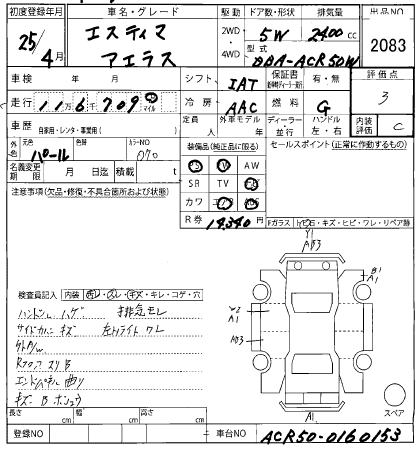 初度登録年月 車名・グレード 駆動 ドア数・形状 排気量 出品NO
25年 4月 エスティマ アエラス 2WD・4WD・ 5W 2400cc 2083
型式 DBA-ACR50W
車検 年 月 シフト IAT 保証書 有・無 評価点 3
走行 11万6千709 マイル 冷房 AAC 燃料 G
車歴 自家用・レンタ・事業用( ) 定員 人 外車モデル 年 ディーラー 並行 ハンドル 左・右 内装評価 C
外色 元色 パール 色替 カラーNO 070 装備品(純正品に限る) セールスポイント(正常に作動するもの)
PS PW AW
名義変更期限 月 日迄 積載 t SR TV
注意事項(欠品・修復・不具合箇所および状態) カワ エアB ABS
R券 14,340円 Fガラス トビ石・キズ・ヒビ・ワレ・リペア跡
Y1
AB3
検査員記入 内装 キレ・コゲ・穴 B1
A1
ハンドル ハゲ 排気モレ
サイドカバー キズ 左Hライト ワレ
W2
A1
AB3
外 小W
Rフロア スリB
エンドパネル 曲り
キズ B
A1 スペア
長さ cm 幅 cm 高さ cm
登録NO 車台NO ACR50-0160153